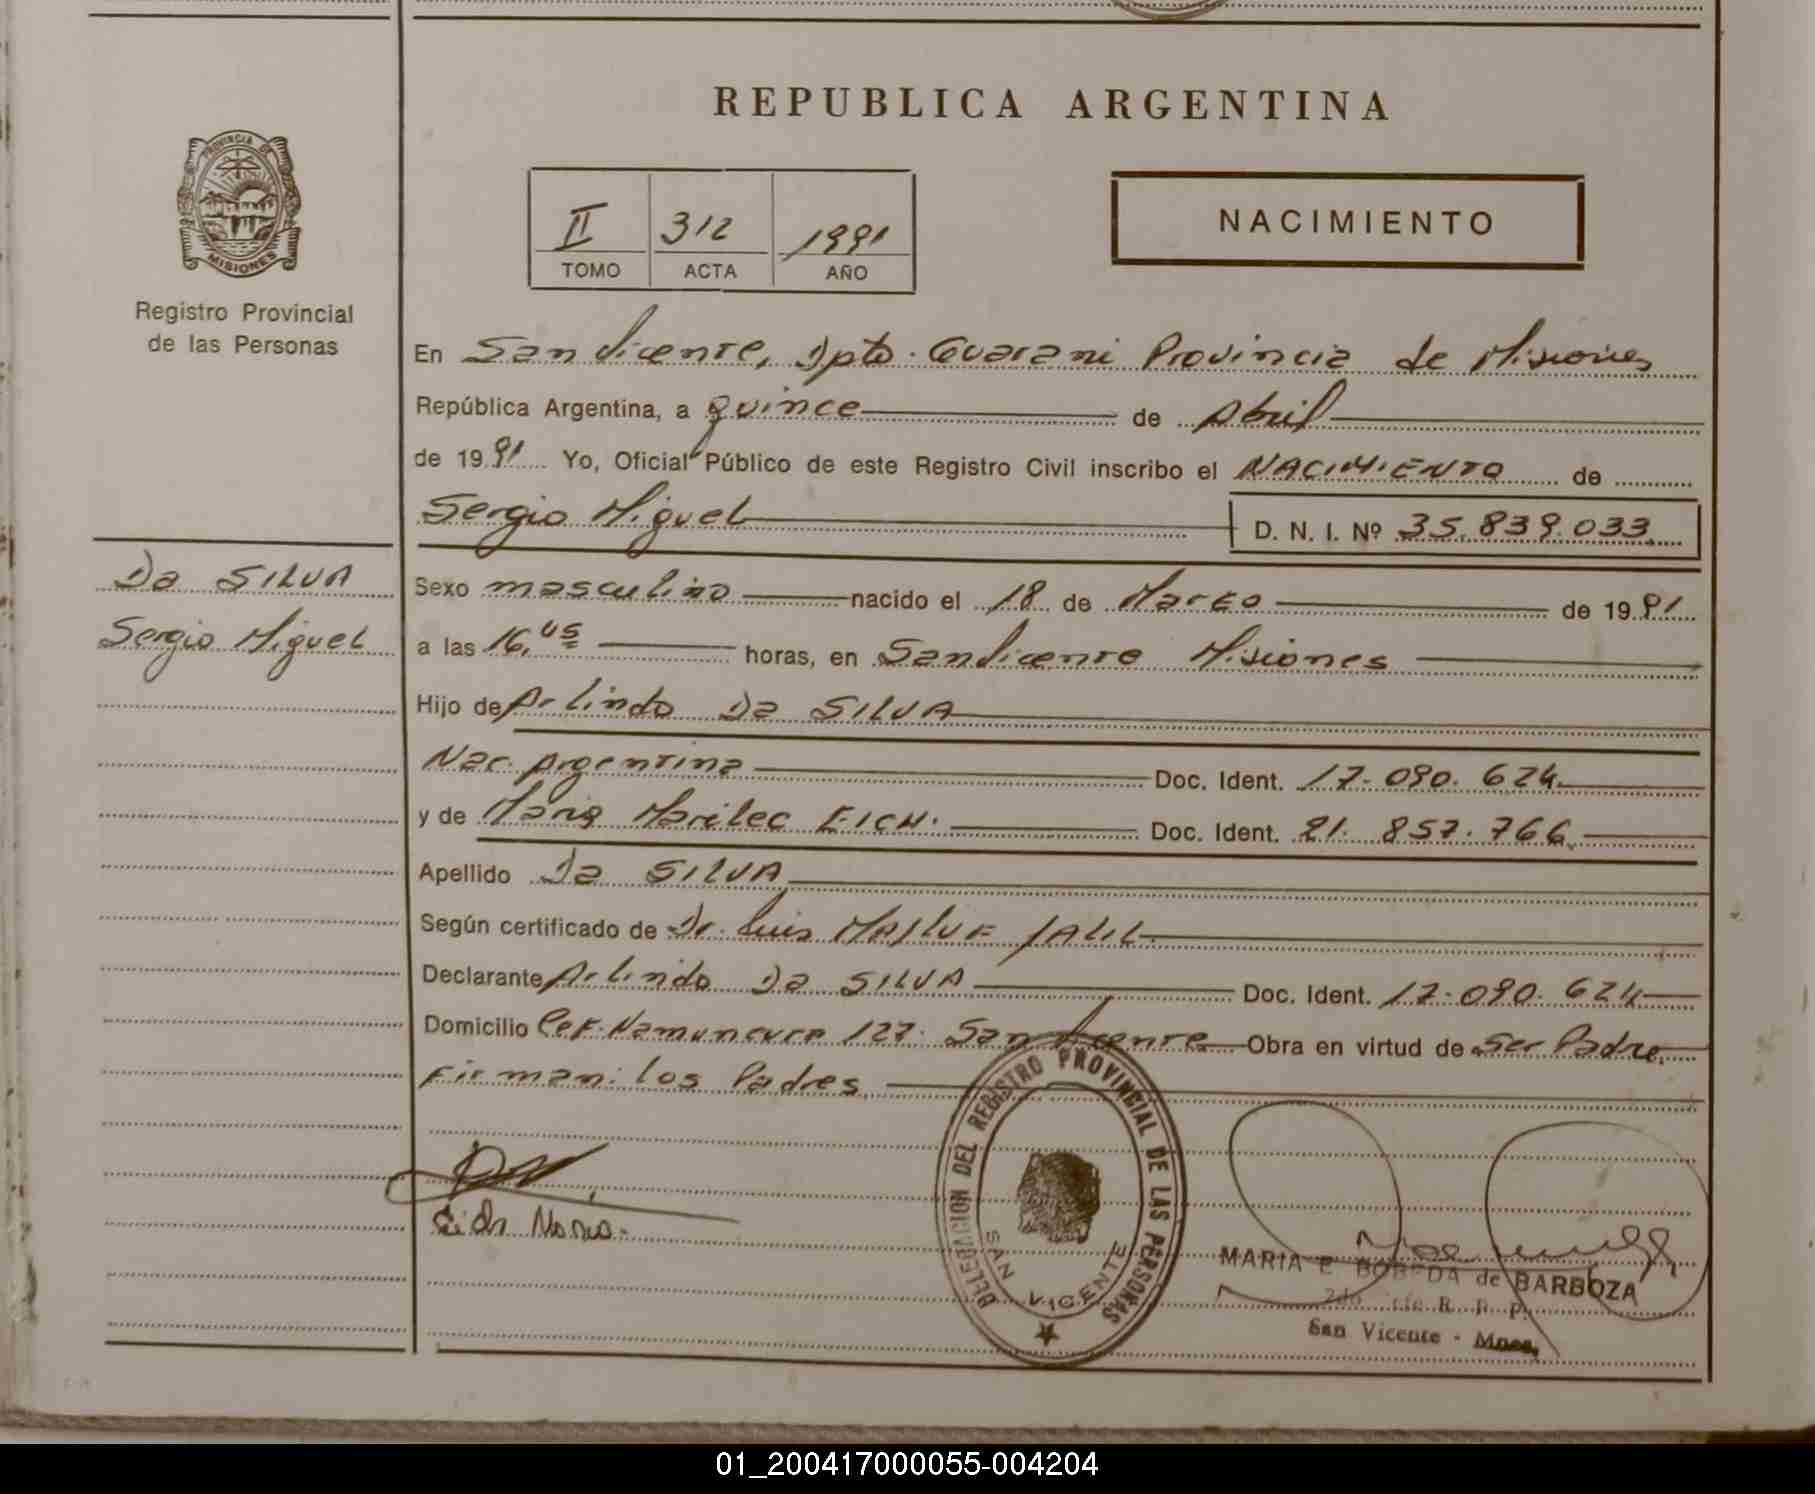 REPUBLICA ARGENTINA
PROVINCIA DE
MISIONES
Registro Provincial
de las Personas
II 312 1991
TOMO ACTA AÑO
NACIMIENTO
En San Vicente, Dpto. Guarani Provincia de Misiones
República Argentina, a quince de Abril
de 1991 Yo, Oficial Público de este Registro Civil inscribo el NACIMIENTO de
Sergio Miguel D. N. I. Nº 35.839.033
Da SILVA
Sergio Miguel
Sexo masculino nacido el 18 de Marzo de 1991
a las 16,05 horas, en San Vicente Misiones
Hijo de Arlindo Da SILVA
Nac. Argentina Doc. Ident. 17.090.624
y de Maria Marilec EICH. Doc. Ident. 21.857.766
Apellido Da SILVA
Según certificado de Dr. Luis JALIL
Declarante Arlindo Da SILVA Doc. Ident. 17.090.624
Domicilio Cef. Namuncura 127. San Vicente Obra en virtud de Ser Padre.
Firman: los Padres
Eich Maria.
DELEGACION DEL REGISTRO PROVINCIAL DE LAS PERSONAS
SAN VICENTE
MARIA E. BOBEDA de BARBOZA
2do. R. P. P.
San Vicente - Mnes.
01_200417000055-004204